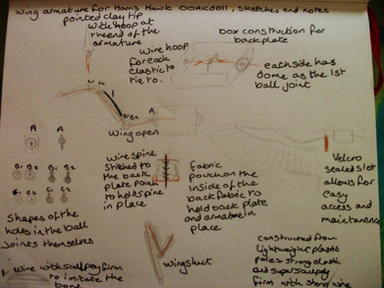 Wing armature for Harris Hawk OOAK doll, sketches and notes
pointed clay tip
with hoop at
the end of the
armature
box construction for
backplate
wire hoop
for each
elastic to
tie to.
each side has
dome as the 1st
ball joint
A
Wing open
A A
B1 B2 B1 B2
C1 C2 C1 C2
shapes of the
holes in the ball
joints themselves
wire spine
stitched to
the back
plate pouch
to hold spine
in place
fabric
pouch on the
inside of the
back fabric to
hold back plate
and armature in
place
Velcro
sealed slot
allows for
easy
access and
maintenance
wing shut
constructed from
lightweight plastic
poles strong elastic
and super sculpey
firm with strong wire
wire with sculpey firm
to imitate the
bone